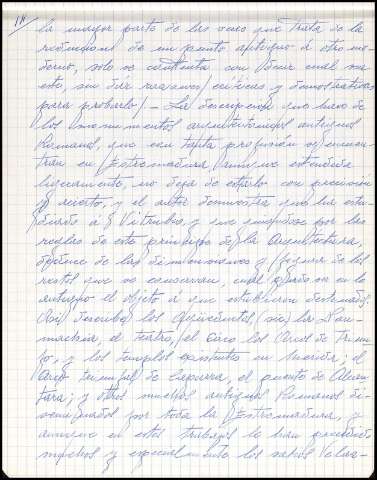 la mayor parte de las veces que trata de la
reduccion de un punto antiguo á otro mo-
derno, solo se contenta con decir cual sea
este, sin dár razones criticas y demostrativas
para probarlo. - La descripcion que hace de
los monumentos arquitectonicos antiguos
Romanos, que con tanta profusión se encuen-
tran en Extremadura aunque estendida
ligeramente, no deja de estarlo con precisión
y acierto, y el autor demuestra que ha es-
tudiado á Vitrubio, y que guiandose por las
reglas de este principe de la Arquitectura,
deduce de las dimensiones y figura de los
restos que se conservan, cual pudo ser en lo
antiguo el objeto á que estubieron destinados.
Asi describe los (sic) la Nau-
machia, el teatro, el Circo los Arcos de Triun-
fo, y los templos existentes en Merida; el
Arco triunfal de Caparra, el puente de Alcan-
tara; y otros muchos antiguos Romanos di-
seminados por toda la Extremadura, y
aunque en estos trabajos le han precedido
muchos y especialmente los señores Velaz-